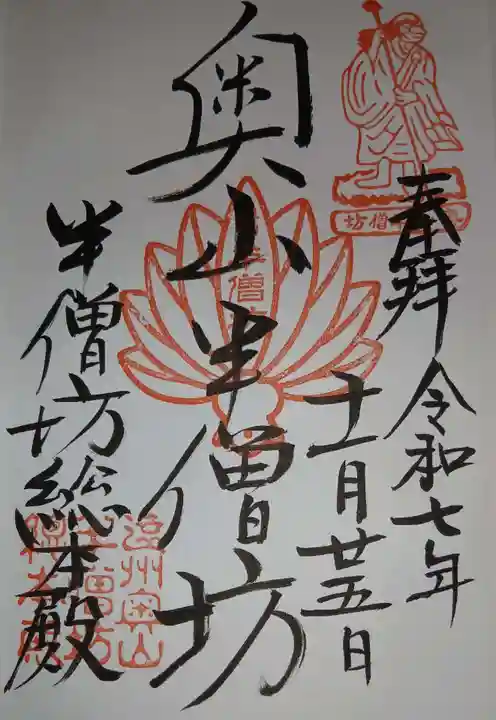 奉拝 令和七年
十一月廿五日
奥山半僧坊
半僧坊総本殿
半僧坊
遠州奥山